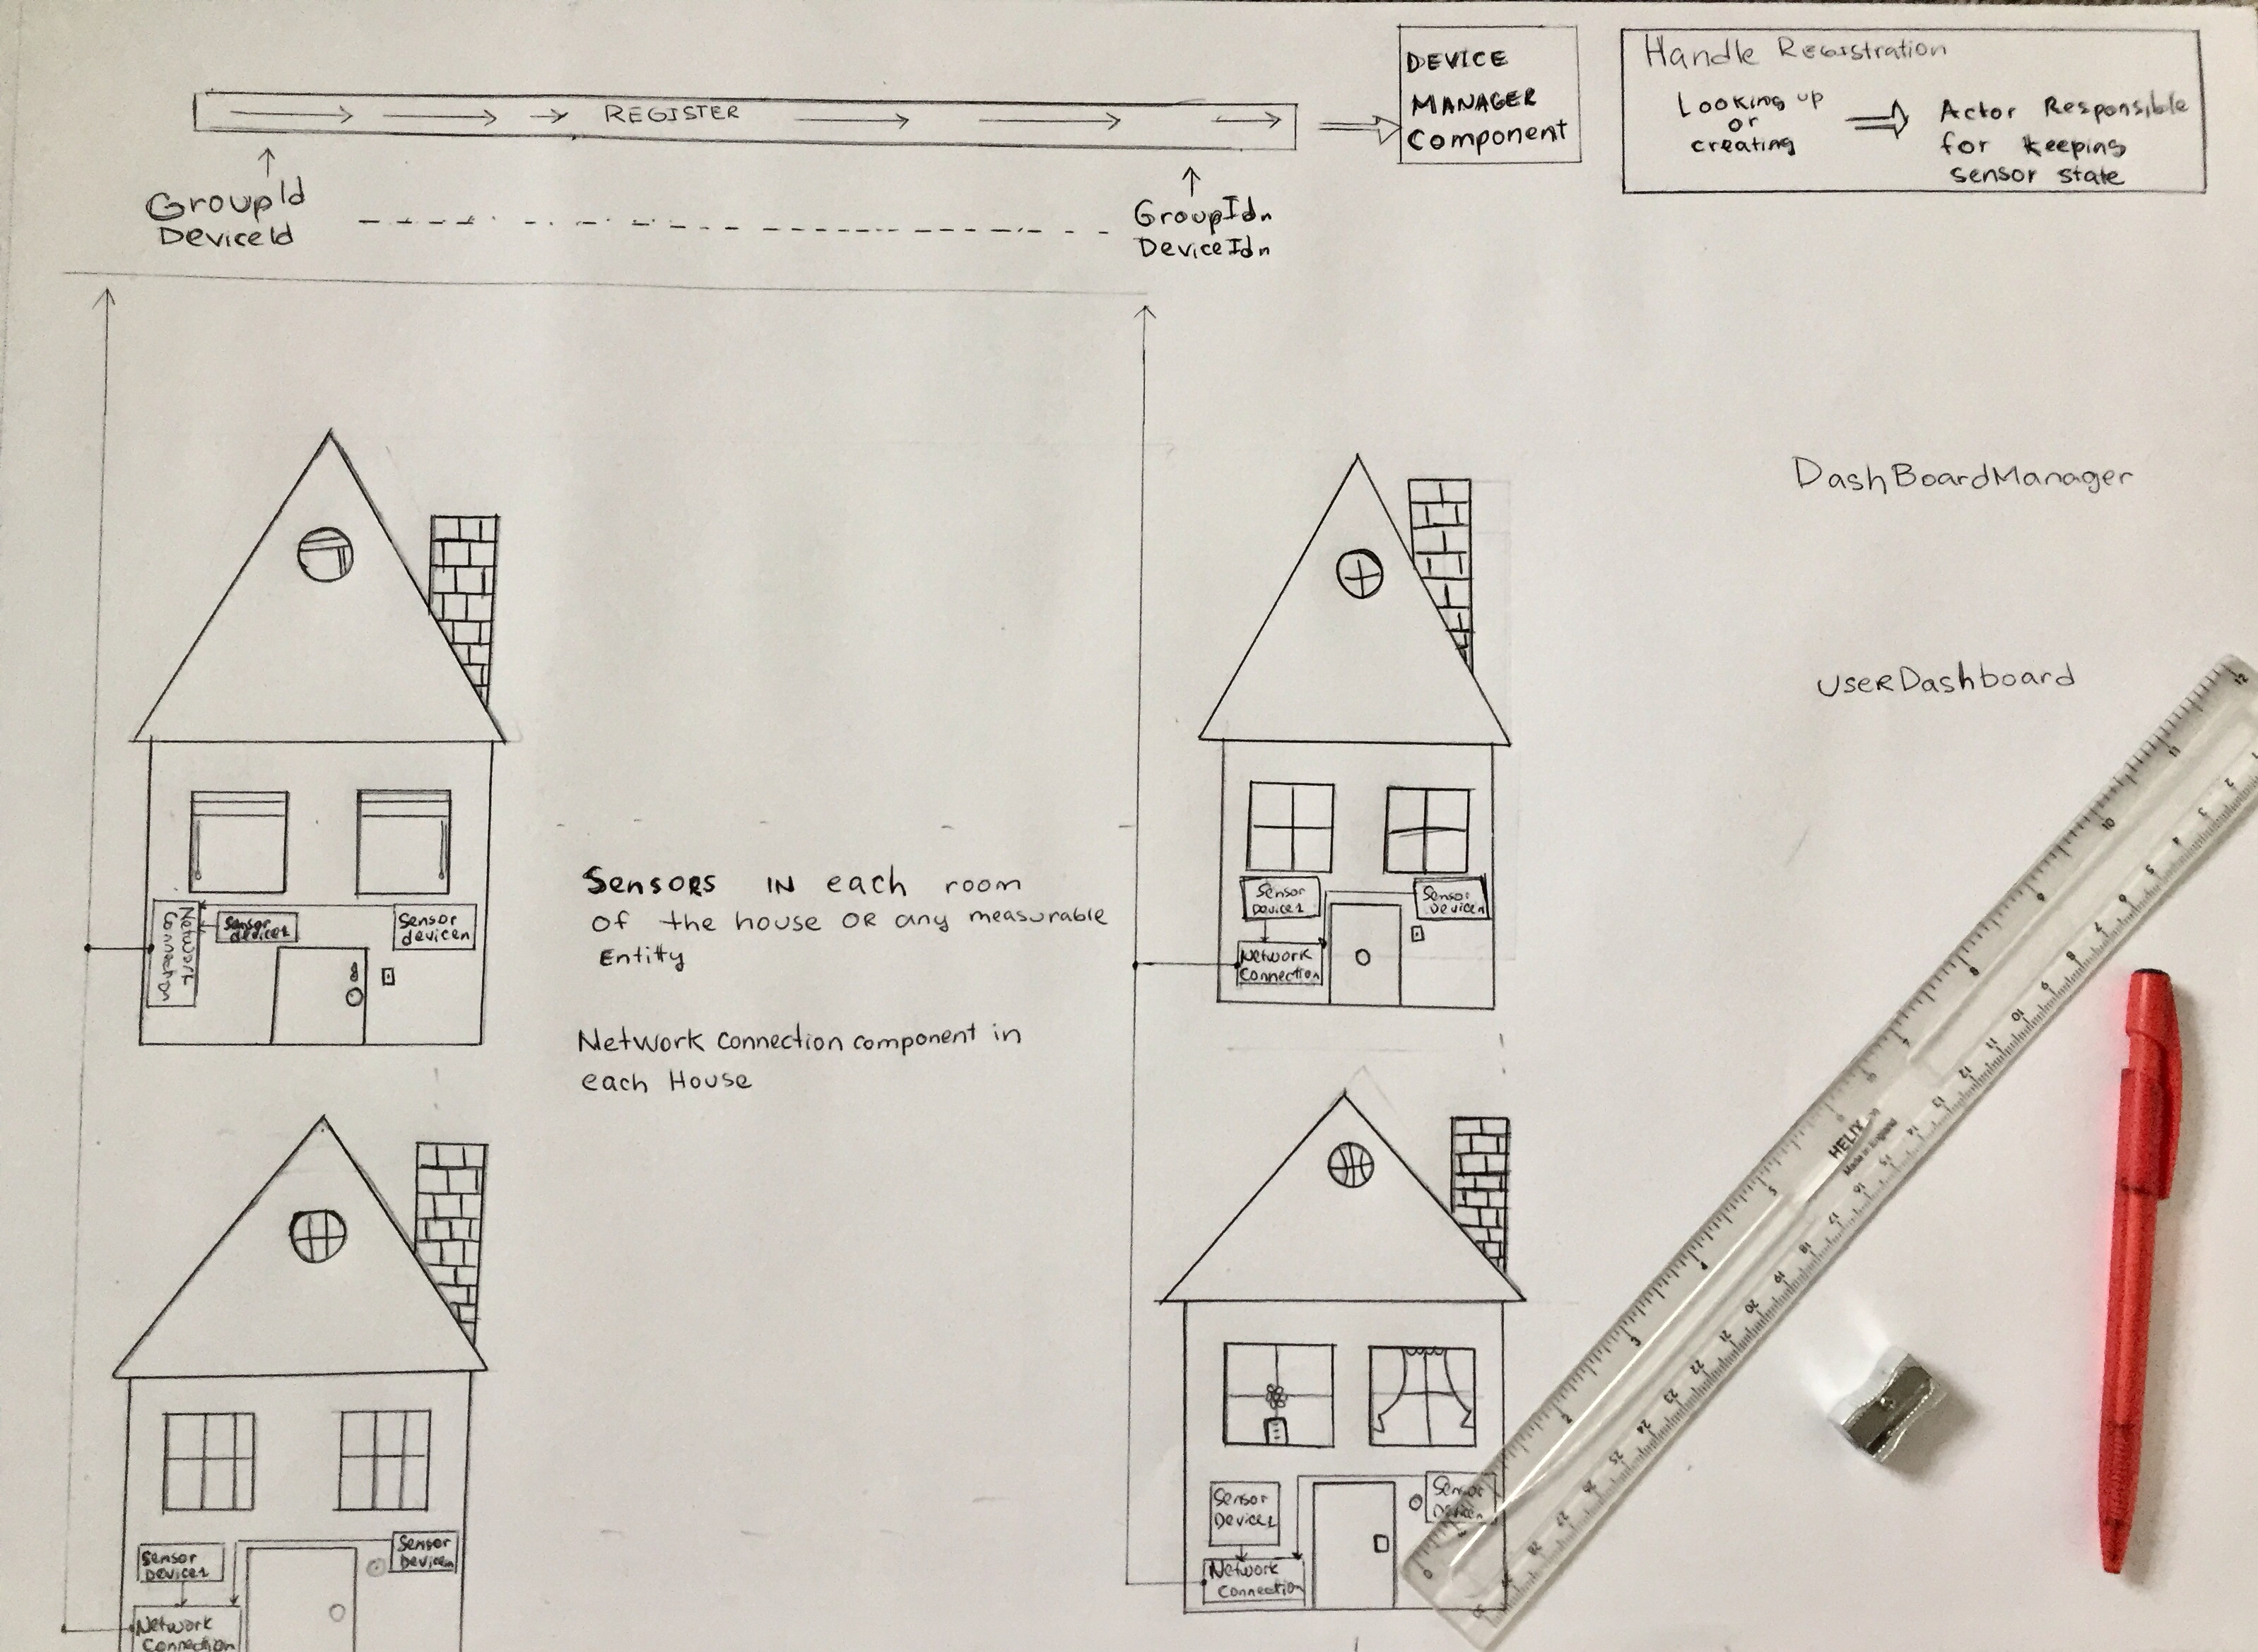 REGISTER
DEVICE
MANAGER
Component
Handle Registration
Looking up
or
creating
Actor Responsible
for keeping
sensor state
GroupId
DeviceId
GroupIdn
DeviceIdn
DashBoardManager
UseRDashboard
Network
Connection
Sensor
device1
Sensor
devicen
Sensors IN each room
of the house OR any measurable
Entitty
Network connection component in
each House
Sensor
Device1
Sensor
Devicen
Network
Connection
Sensor
Device1
Sensor
Devicen
Network
Connection
Sensor
Device1
Sensor
Devicen
Network
Connection
HELIX
Made in England
0 1 2 3 4 5 6 7 8 9 10 11 12